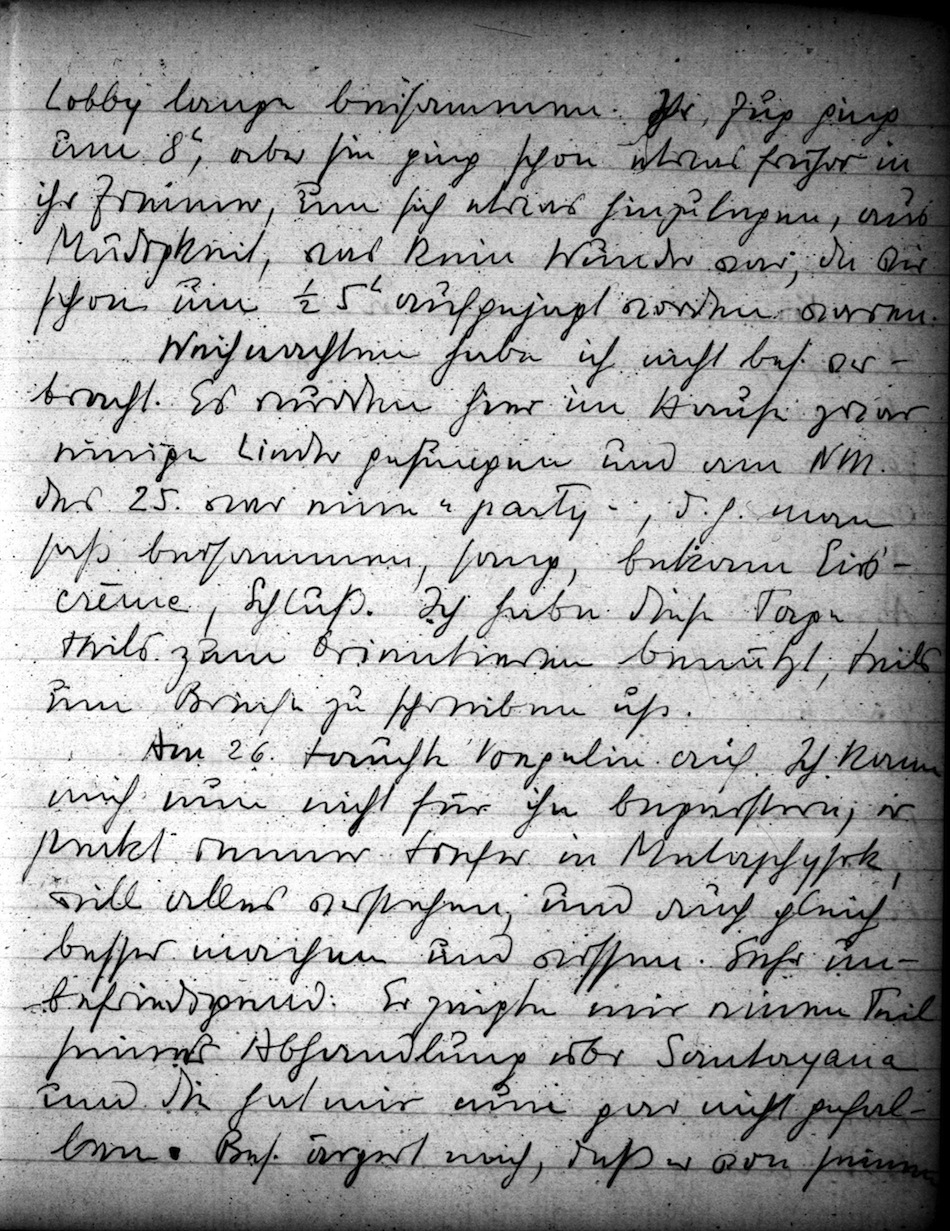 Lobby lange beisammen. Ihr Zug ging
um 8ʰ, aber sie ging schon etwas früher in
ihr Zimmer, um sich etwas hinzulegen, aus
Müdigkeit, was kein Wunder war, da wir
schon um ½ 5ʰ aufgejagt worden waren.
Weihnachten habe ich nicht bes. ver-
bracht. Es wurden hier im Hause zwar
einige Lieder gesungen und am NM.
des 25. war eine „party", d. h. man
saß beisammen, sang, bekam Eis-
crème, Schluß. Ich habe diese Tage
teils zum Orientieren benützt, teils
um Briefe zu schreiben usf.
Am 26. tauchte Voegelin auf. Ich kann
mich nun nicht für ihn begeistern, er
sinkt immer tiefer in Metaphysik,
will alles verstehen, und auch gleich
besser machen und wissen. Sehr un-
befriedigend. Er zeigte mir einen Teil
seiner Abhandlung über Santayana
und die hat mir nun gar nicht gefal-
len. Bes. ärgert mich, daß er von seinem